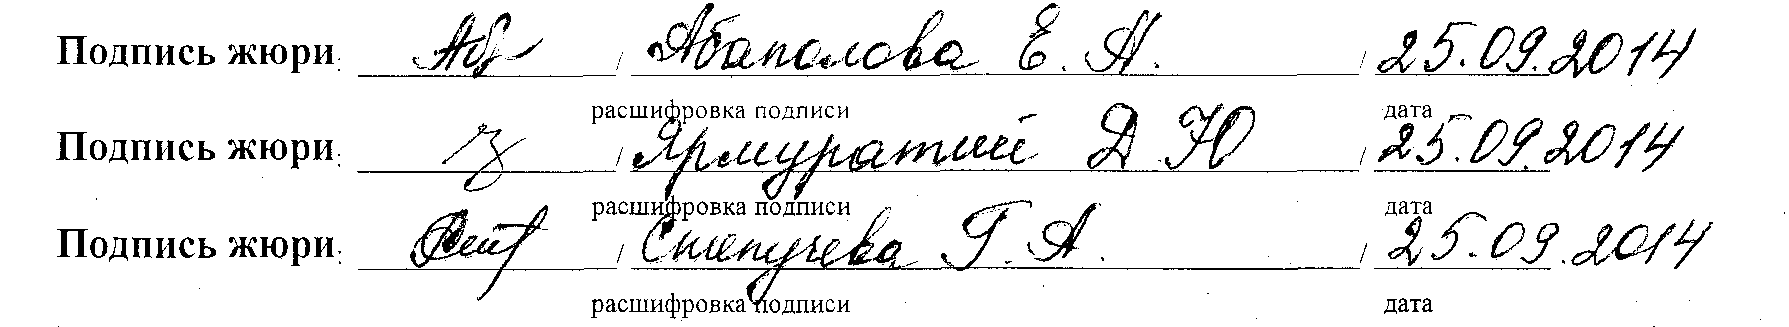 Подпись жюри: / Абаполова Е. А. / 25.09.2014
расшифровка подписи дата
Подпись жюри: / Д Ю / 25.09.2014
расшифровка подписи дата
Подпись жюри: / Г. А. / 25.09.2014
расшифровка подписи дата